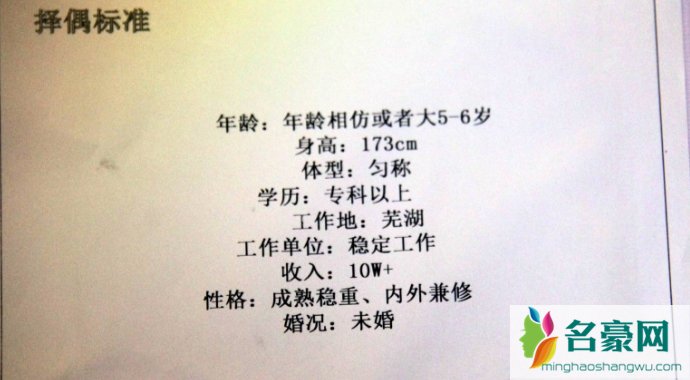 择偶标准
年龄：年龄相仿或者大5-6岁
身高：173cm
体型：匀称
学历：专科以上
工作地：芜湖
工作单位：稳定工作
收入：10W+
性格：成熟稳重、内外兼修
婚况：未婚
名豪网
minghaoshangwu.com